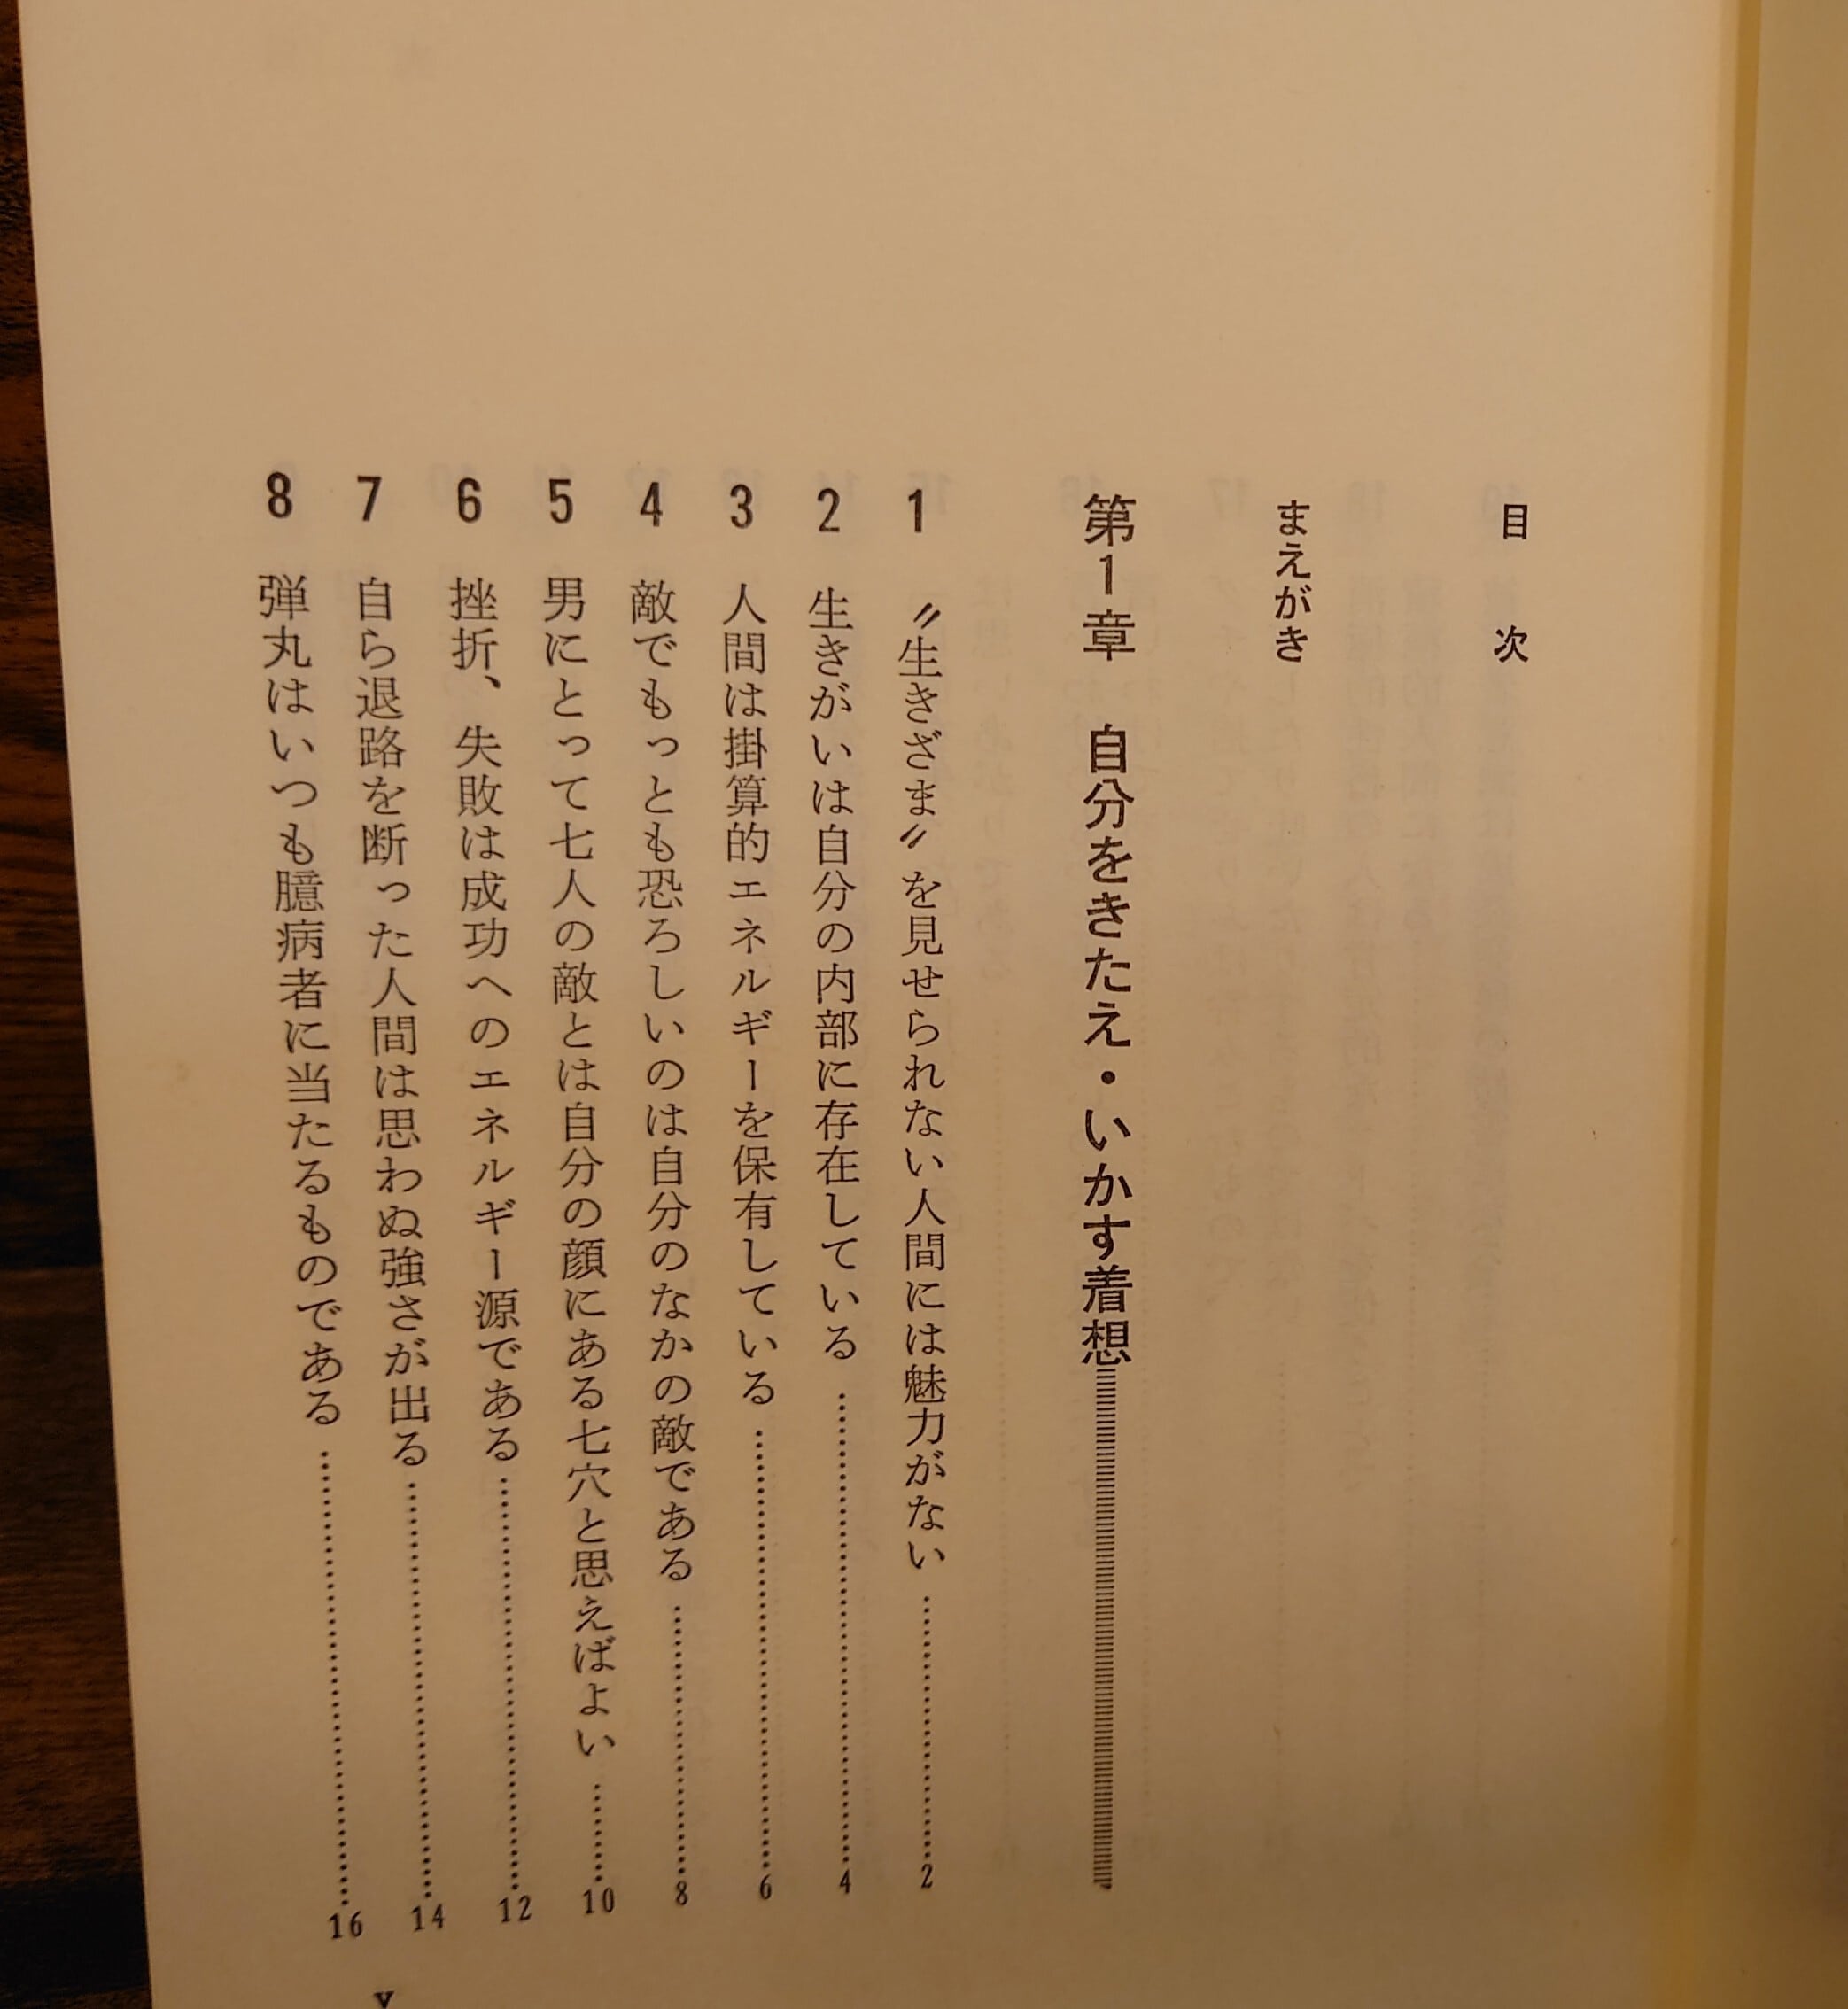 目次
まえがき
第1章 自分をきたえ・いかす着想
1 〝生きざま〟を見せられない人間には魅力がない……2
2 生きがいは自分の内部に存在している……4
3 人間は掛算的エネルギーを保有している……6
4 敵でもっとも恐ろしいのは自分のなかの敵である……8
5 男にとって七人の敵とは自分の顔にある七穴と思えばよい……10
6 挫折、失敗は成功へのエネルギー源である……12
7 自ら退路を断った人間は思わぬ強さが出る……14
8 弾丸はいつも臆病者に当たるものである……16
v